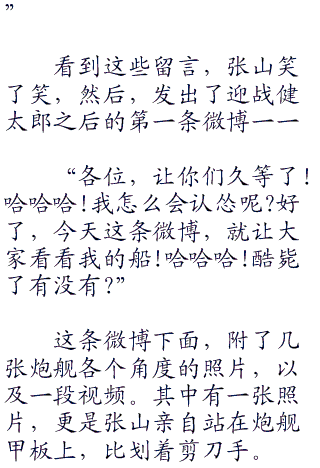 ”
看到这些留言，张山笑
了笑，然后，发出了迎战健
太郎之后的第一条微博一一
“各位，让你们久等了！
哈哈哈！我怎么会认怂呢？好
了，今天这条微博，就让大
家看看我的船！哈哈哈！酷毙
了有没有？”
这条微博下面，附了几
张炮舰各个角度的照片，以
及一段视频。其中有一张照
片，更是张山亲自站在炮舰
甲板上，比划着剪刀手。